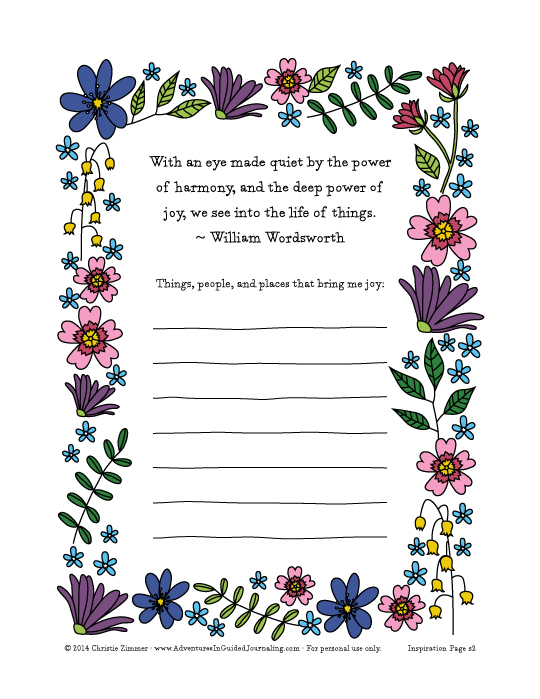 With an eye made quiet by the power
of harmony, and the deep power of
joy, we see into the life of things.
~ William Wordsworth
Things, people, and places that bring me joy:
© 2014 Christie Zimmer · www.AdventuresInGuidedJournaling.com · For personal use only. Inspiration Page 52